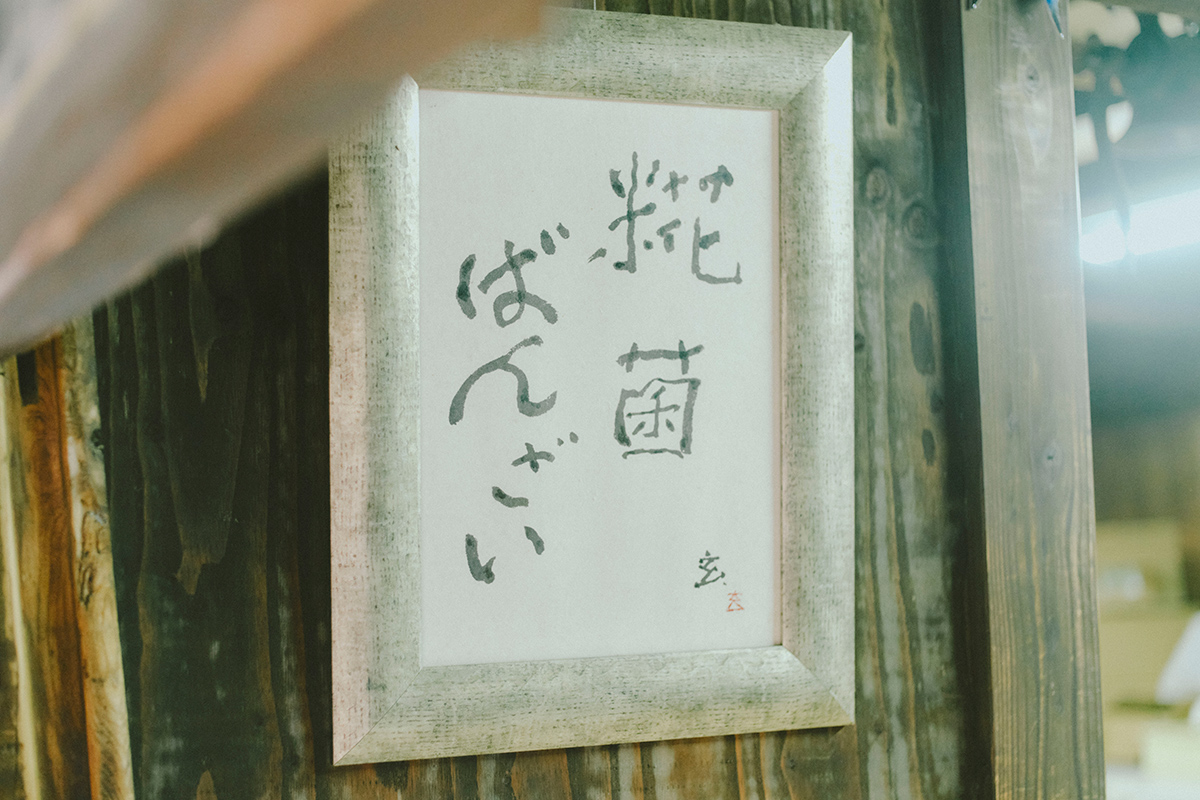 糀菌
ばんざい
玄